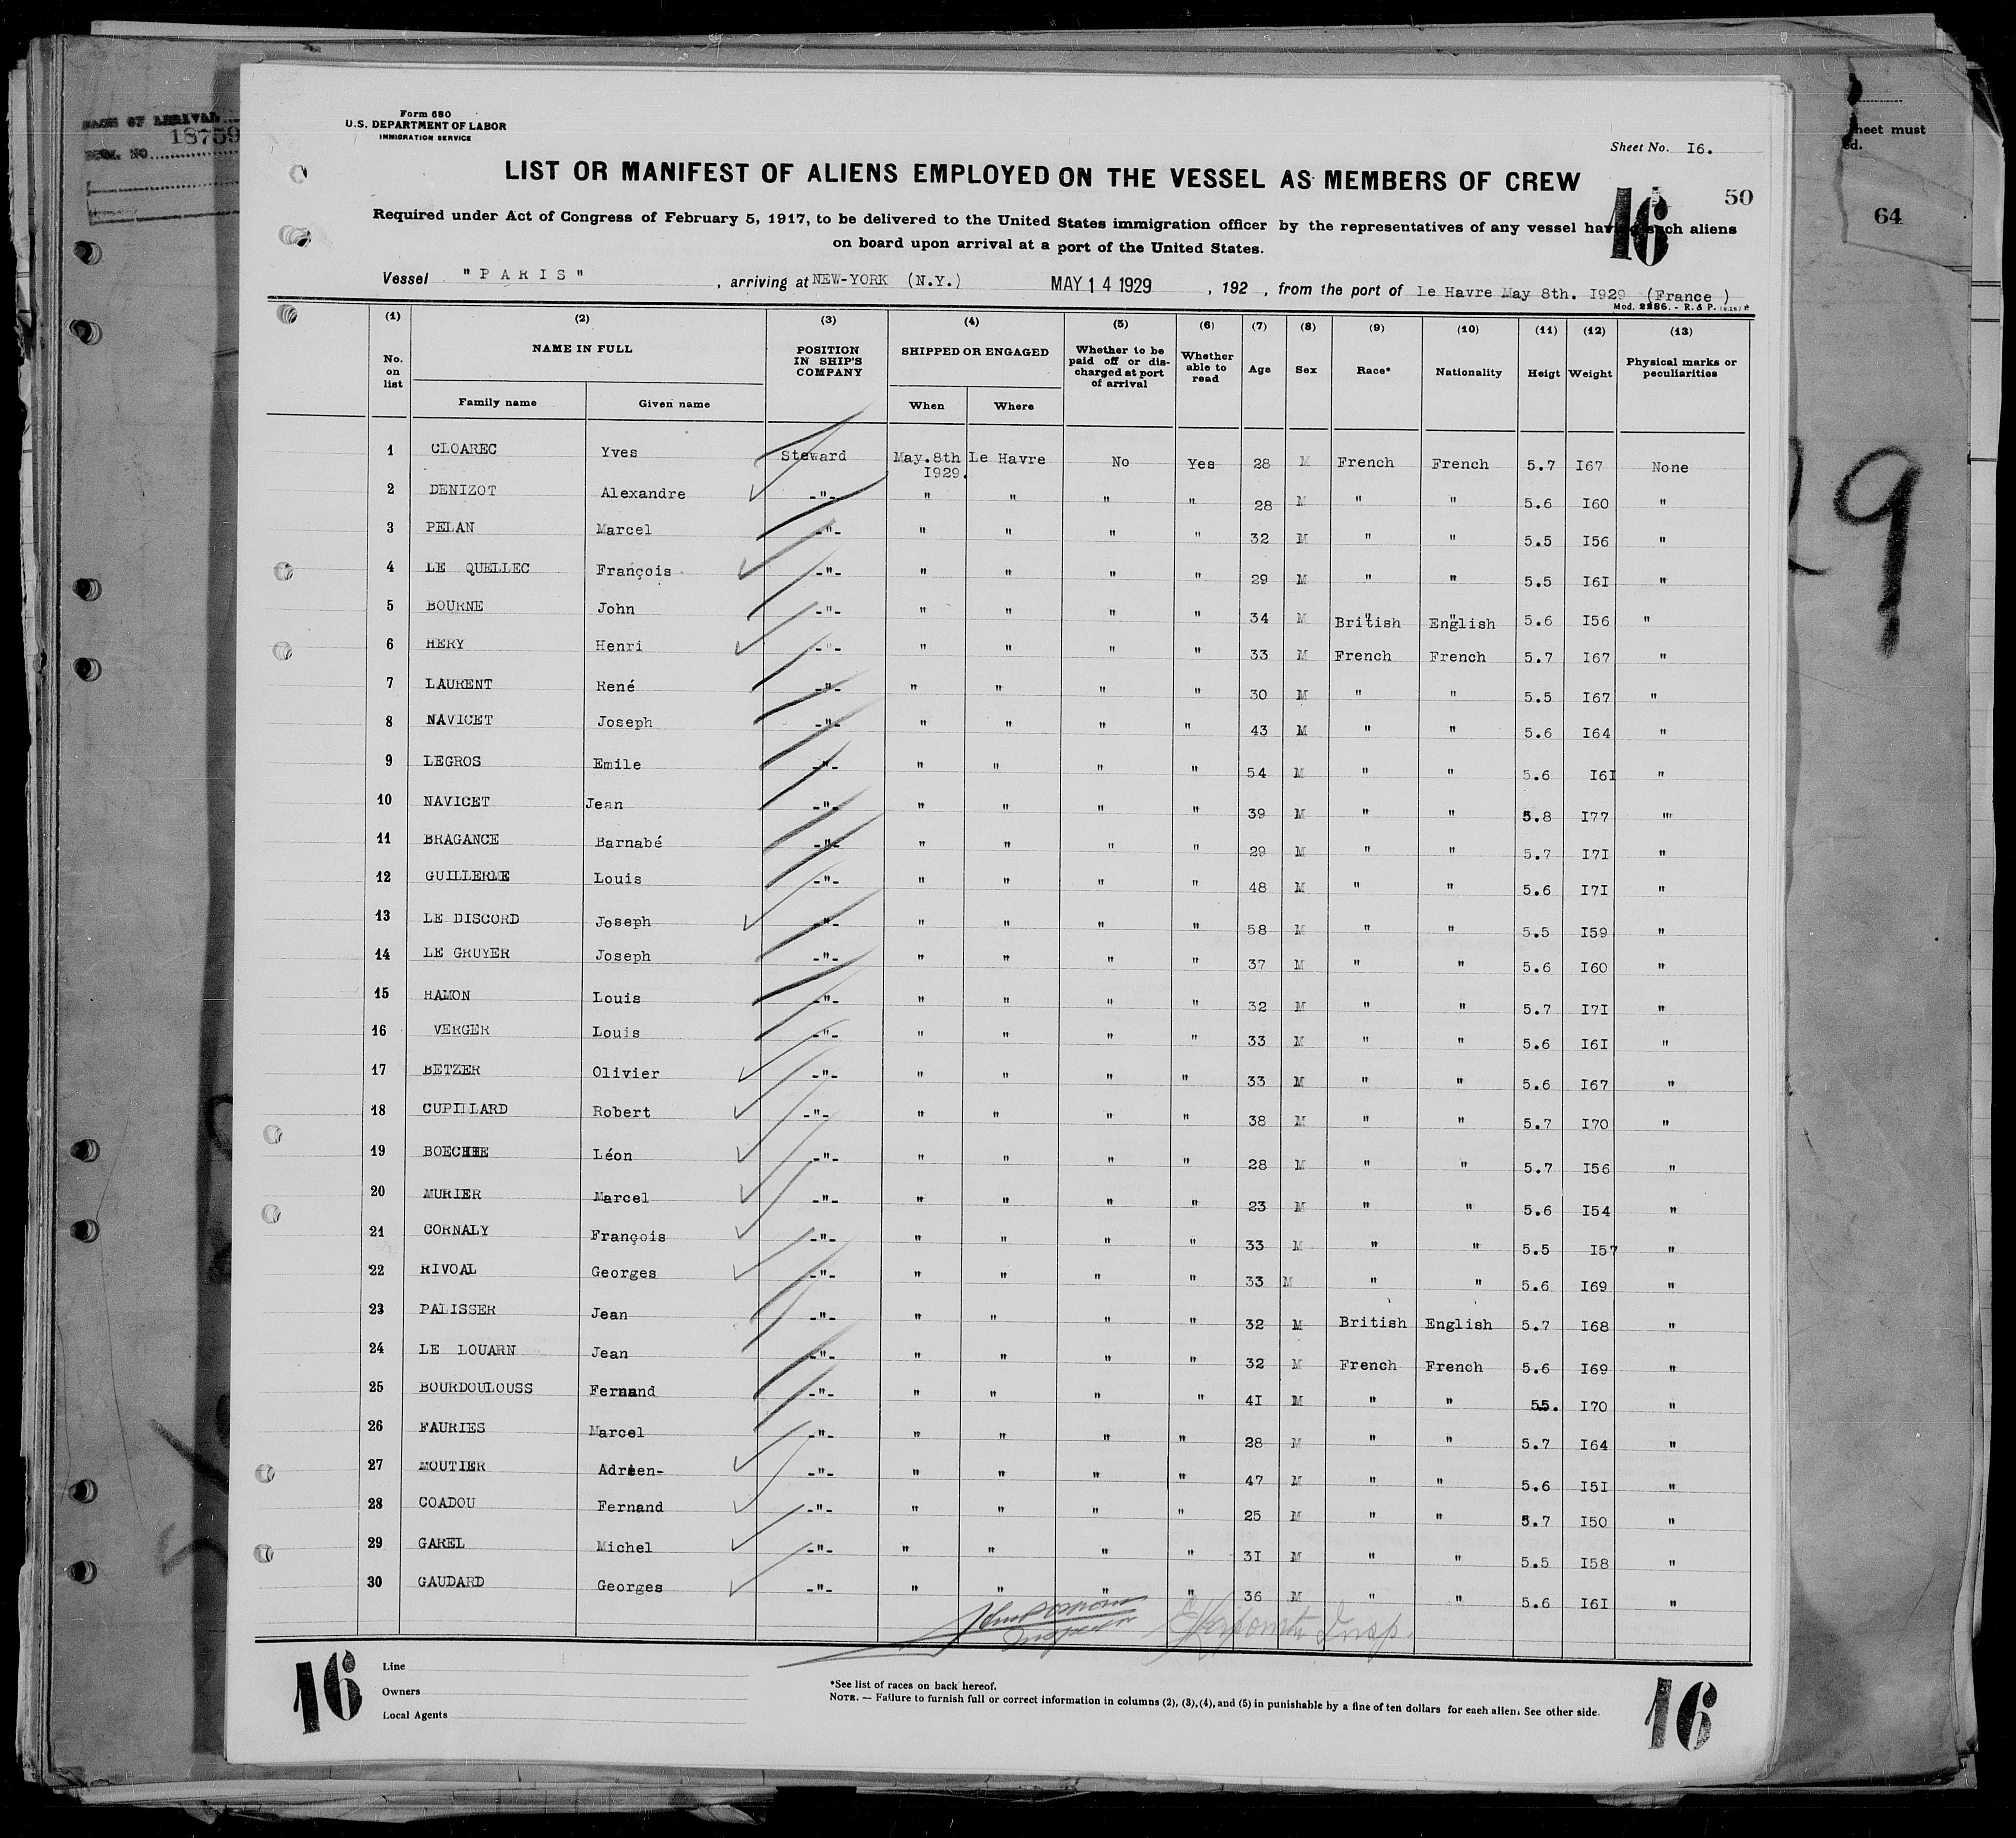 Form 680
U.S. DEPARTMENT OF LABOR
IMMIGRATION SERVICE
18759
Sheet No. I6.
LIST OR MANIFEST OF ALIENS EMPLOYED ON THE VESSEL AS MEMBERS OF CREW
16
50
64
Required under Act of Congress of February 5, 1917, to be delivered to the United States immigration officer by the representatives of any vessel having such aliens
on board upon arrival at a port of the United States.
Vessel "PARIS", arriving at NEW-YORK (N.Y.) MAY 14 1929, 192 , from the port of Le Havre May 8th. I929 (France)
Mod. 2286. - R. & P.
(1) (2) (3) (4) (5) (6) (7) (8) (9) (10) (11) (12) (13)
No. on list NAME IN FULL Family name Given name POSITION IN SHIP'S COMPANY SHIPPED OR ENGAGED When Where Whether to be paid off or discharged at port of arrival Whether able to read Age Sex Race* Nationality Heigt Weight Physical marks or peculiarities
1 CLOAREC Yves Steward May.8th I929. Le Havre No Yes 28 M French French 5.7 I67 None
2 DENIZOT Alexandre -"- " " " " 28 M " " 5.6 I60 "
3 PELAN Marcel -"- " " " " 32 M " " 5.5 I56 "
4 LE QUELLEC François -"- " " " " 29 M " " 5.5 I6I "
5 BOURNE John -"- " " " " 34 M British English 5.6 I56 "
6 HERY Henri -"- " " " " 33 M French French 5.7 I67 "
7 LAURENT René -"- " " " " 30 M " " 5.5 I67 "
8 NAVICET Joseph -"- " " " " 43 M " " 5.6 I64 "
9 LEGROS Emile -"- " " " " 54 M " " 5.6 I6I "
10 NAVICET Jean -"- " " " " 39 M " " 5.8 I77 "
11 BRAGANCE Barnabé -"- " " " " 29 M " " 5.7 I7I "
12 GUILLERME Louis -"- " " " " 48 M " " 5.6 I7I "
13 LE DISCORD Joseph -"- " " " " 58 M " " 5.5 I59 "
14 LE GRUYER Joseph -"- " " " " 37 M " " 5.6 I60 "
15 HAMON Louis -"- " " " " 32 M " " 5.7 I7I "
16 VERGER Louis -"- " " " " 33 M " " 5.6 I6I "
17 BETZER Olivier -"- " " " " 33 M " " 5.6 I67 "
18 CUPILLARD Robert -"- " " " " 38 M " " 5.7 I70 "
19 Léon -"- " " " " 28 M " " 5.7 I56 "
20 MURIER Marcel -"- " " " " 23 M " " 5.6 I54 "
21 CORNALY François -"- " " " " 33 M " " 5.5 I57 "
22 RIVOAL Georges -"- " " " " 33 M " " 5.6 I69 "
23 PALISSER Jean -"- " " " " 32 M British English 5.7 I68 "
24 LE LOUARN Jean -"- " " " " 32 M French French 5.6 I69 "
25 BOURDOULOUSS Fernand -"- " " " " 4I M " " 55. I70 "
26 FAURIES Marcel -"- " " " " 28 M " " 5.7 I64 "
27 MOUTIER Adrien- -"- " " " " 47 M " " 5.6 I5I "
28 COADOU Fernand -"- " " " " 25 M " " 5.7 I50 "
29 GAREL Michel -"- " " " " 3I M " " 5.5 I58 "
30 GAUDARD Georges -"- " " " " 36 M " " 5.6 I6I "
Insp.
16
Line
Owners
Local Agents
*See list of races on back hereof.
NOTE. — Failure to furnish full or correct information in columns (2), (3), (4), and (5) in punishable by a fine of ten dollars for each alien. See other side.
16